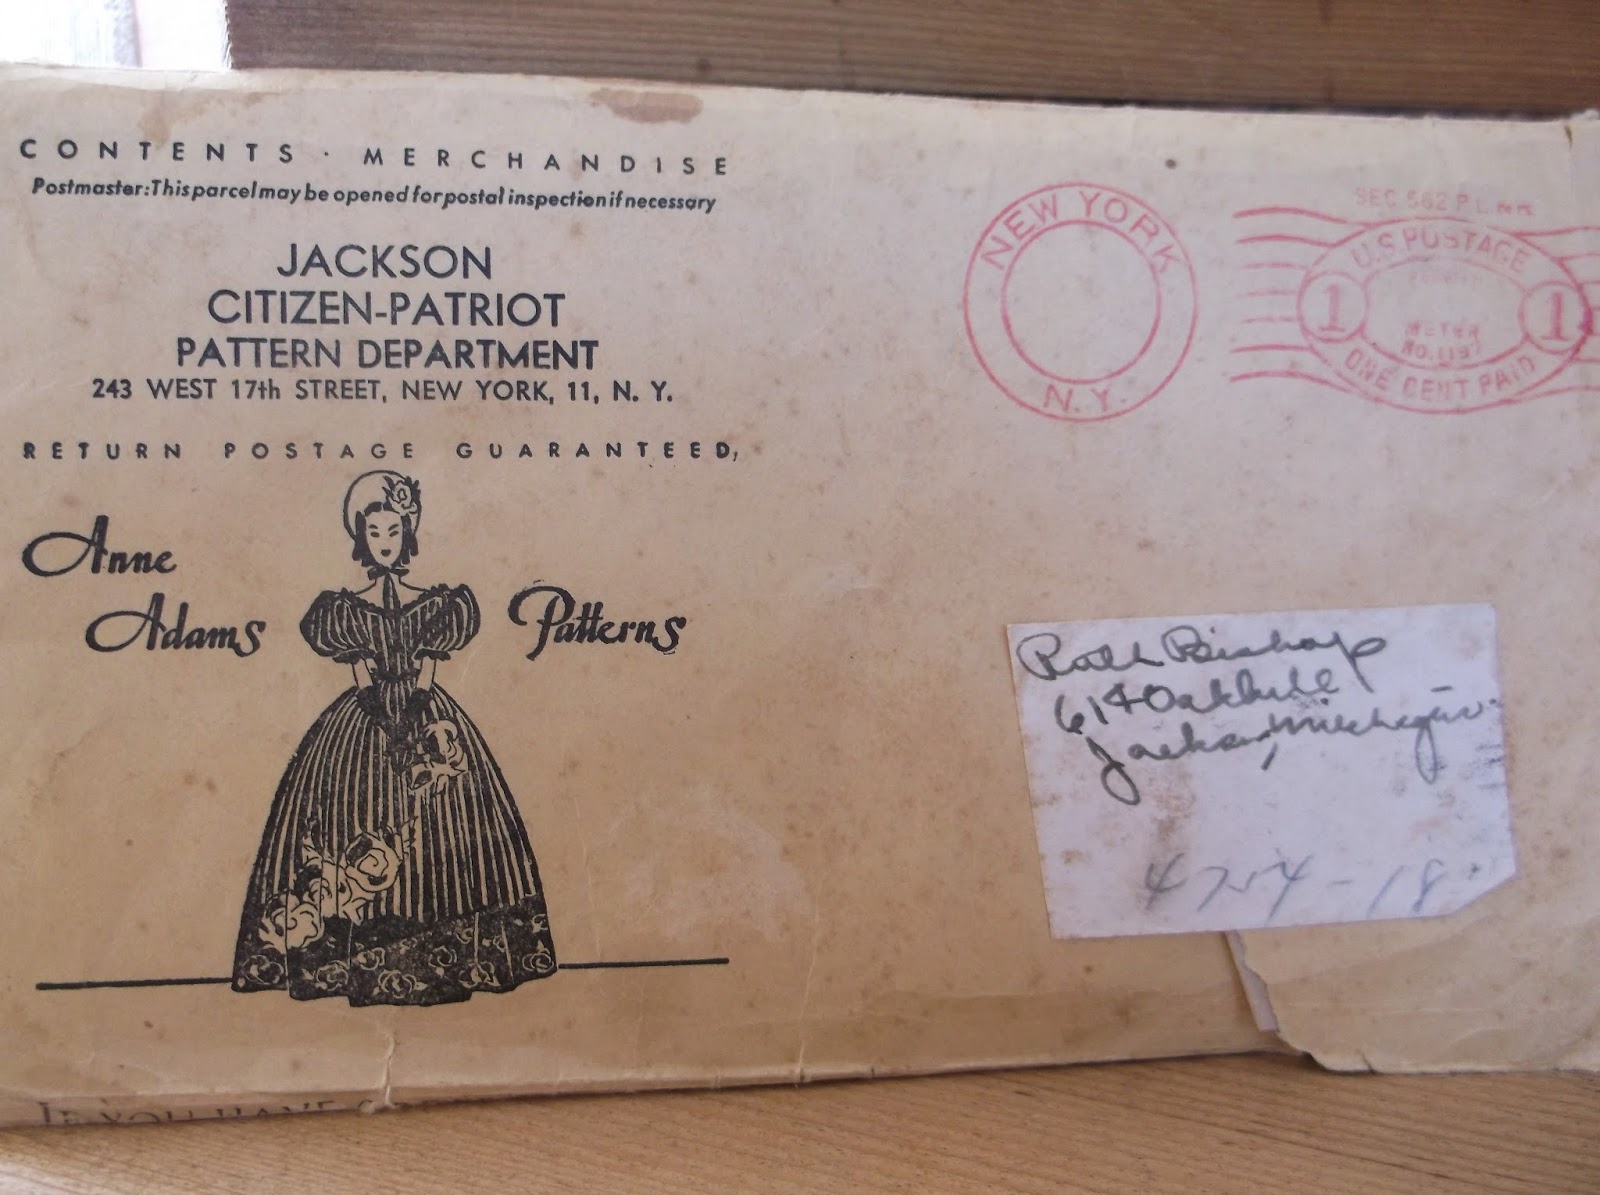 CONTENTS · MERCHANDISE
Postmaster: This parcel may be opened for postal inspection if necessary
JACKSON
CITIZEN-PATRIOT
PATTERN DEPARTMENT
243 WEST 17th STREET, NEW YORK, 11, N. Y.
RETURN POSTAGE GUARANTEED,
Anne
Adams
Patterns
NEW YORK
N.Y.
SEC. 562 P.L.
U.S. POSTAGE
1 1
METER
NO. 1197
ONE CENT PAID
Ruth Bishop
614 Oakhill
Jackson, Michigan.
4754-18
IF YOU HAVE